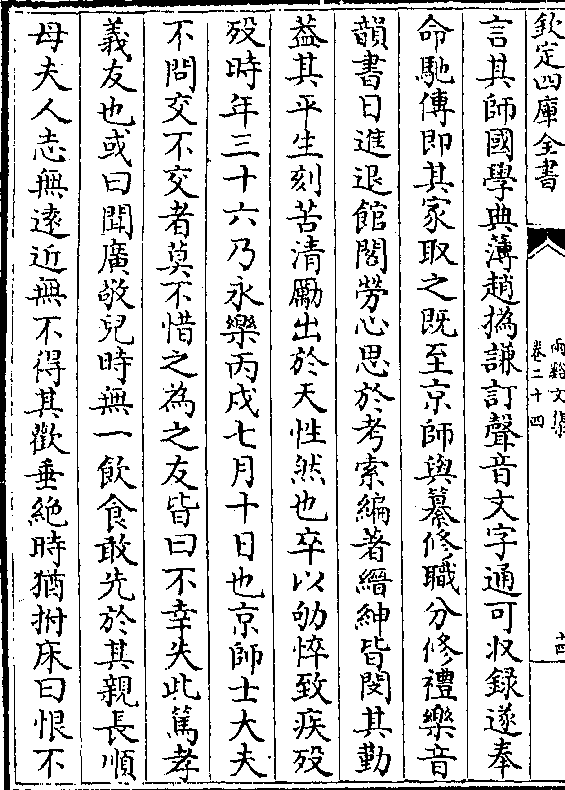 欽定四庫全書
兩谿文集
卷二十四
十四
言其師國學典薄趙撝謙訂聲音文字通可收錄遂奉
命馳傳即其家取之既至京師與纂修職分修禮樂音
韻書日進退館閣勞心思於考索編著縉紳皆閔其勤
葢其平生刻苦清勵出於天性然也卒以劬悴致疾歿
歿時年三十六乃永樂丙戌七月十日也京師士大夫
不問交不交者莫不惜之為之友皆曰不幸失此篤孝
義友也或曰聞廣敬兒時無一飲食敢先於其親長順
母夫人志無逺近無不得其歡垂絶時猶拊床曰恨不